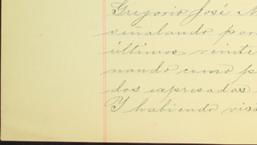 Gregorio José
señalando par
últimos veinte
nando como p
dos expresadas
Y habiendo vis